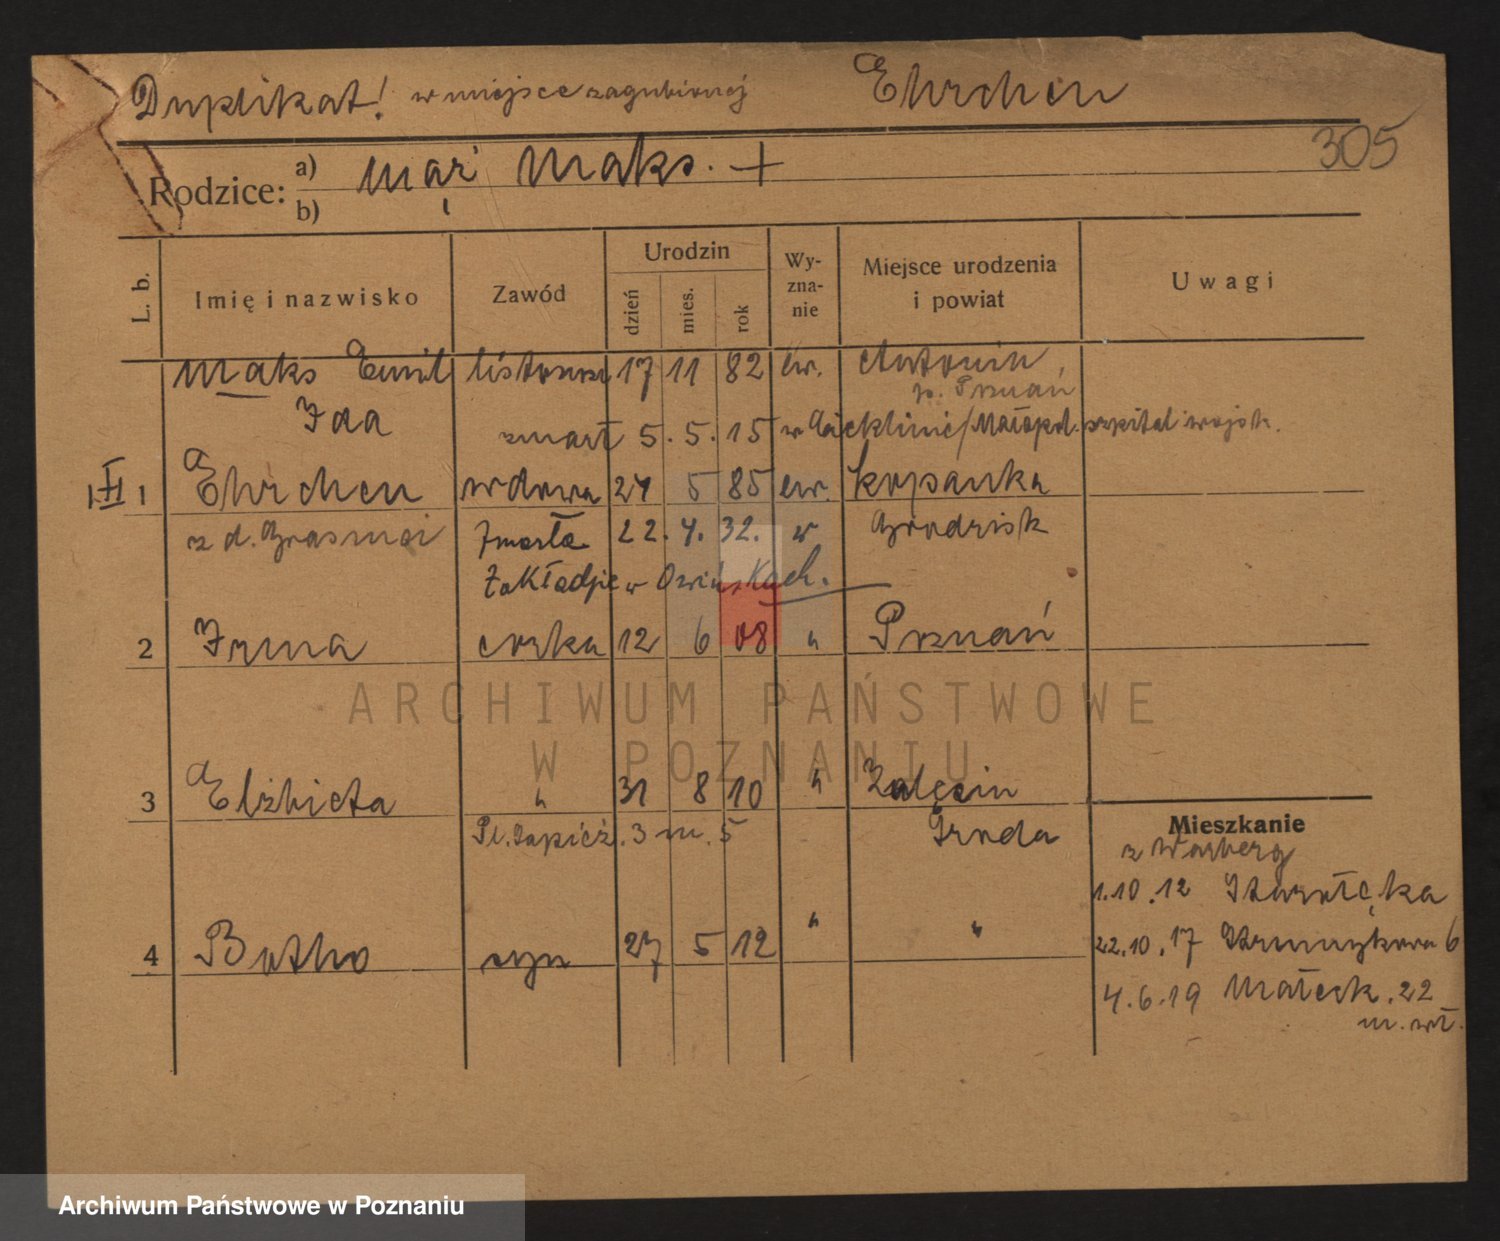 Duplikat! w miejsce zagubionej Ehrchen
305
Rodzice: a) mąż Maks. +
b)
L. b. Imię i nazwisko Zawód Urodzin dzień mies. rok Wy-zna-nie Miejsce urodzenia i powiat Uwagi
Maks Emil listonosz 17 11 82 ew. Antonin
p. Poznań
Ida zmarł 5. 5. 15 w /Małopol. szpital wojsk.
1 Ehrchen wdowa 24 5 85 ew. Kopanka
z d. Zmarła 22. 4. 32. w Grodzisk
Zakładzie w Owińskach.
2 Irma córka 12 6 08 " Poznań
ARCHIWUM PAŃSTWOWE
W POZNANIU
3 Elżbieta " 31 8 10 "
Pl. Sapież. 3 m. 5 Środa
Mieszkanie
z
1.10.12 Starołęka
22.10.17 6
4 Botho syn 27 5 12 " "
4.6.19 Małeck. 22
m. wł.
Archiwum Państwowe w Poznaniu